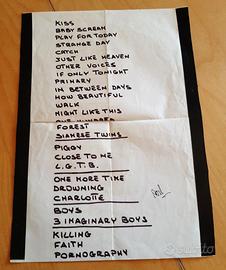 KISS
BABY SCREAM
PLAY FOR TODAY
STRANGE DAY
CATCH
JUST LIKE HEAVEN
OTHER VOICES
IF ONLY TONIGHT
PRIMARY
IN BETWEEN DAYS
HOW BEAUTIFUL
WALK
NIGHT LIKE THIS
ONE HUNDRED
FOREST
SIAMESE TWINS
PIGGY
CLOSE TO ME
L.G.T.B.
ONE MORE TIME
DROWNING
CHARLOTTE
BOYS
3 IMAGINARY BOYS
KILLING
FAITH
PORNOGRAPHY
subito